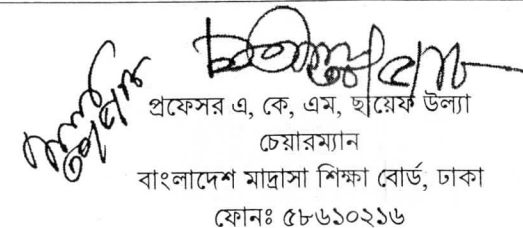 প্রফেসর এ, কে, এম, ছায়েফ উল্যা
চেয়ারম্যান
বাংলাদেশ মাদ্রাসা শিক্ষা বোর্ড, ঢাকা
ফোনঃ ৫৮৬১০২১৬